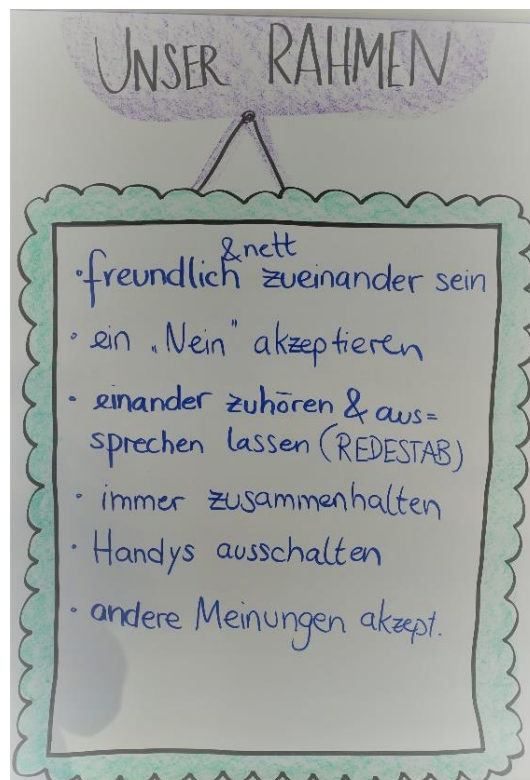 UNSER RAHMEN
& nett
• freundlich zueinander sein
• ein „Nein" akzeptieren
• einander zuhören & aus=
sprechen lassen (REDESTAB)
• immer zusammenhalten
• Handys ausschalten
• andere Meinungen akzept.